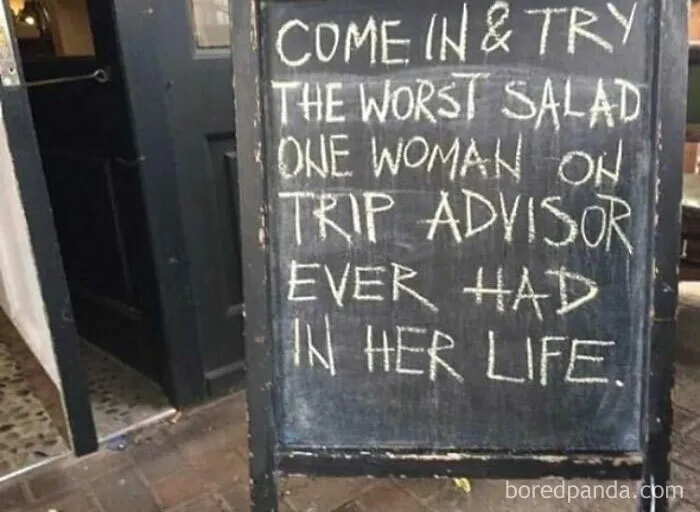 COME IN & TRY
THE WORST SALAD
ONE WOMAN ON
TRIP ADVISOR
EVER HAD
IN HER LIFE.
boredpanda.com